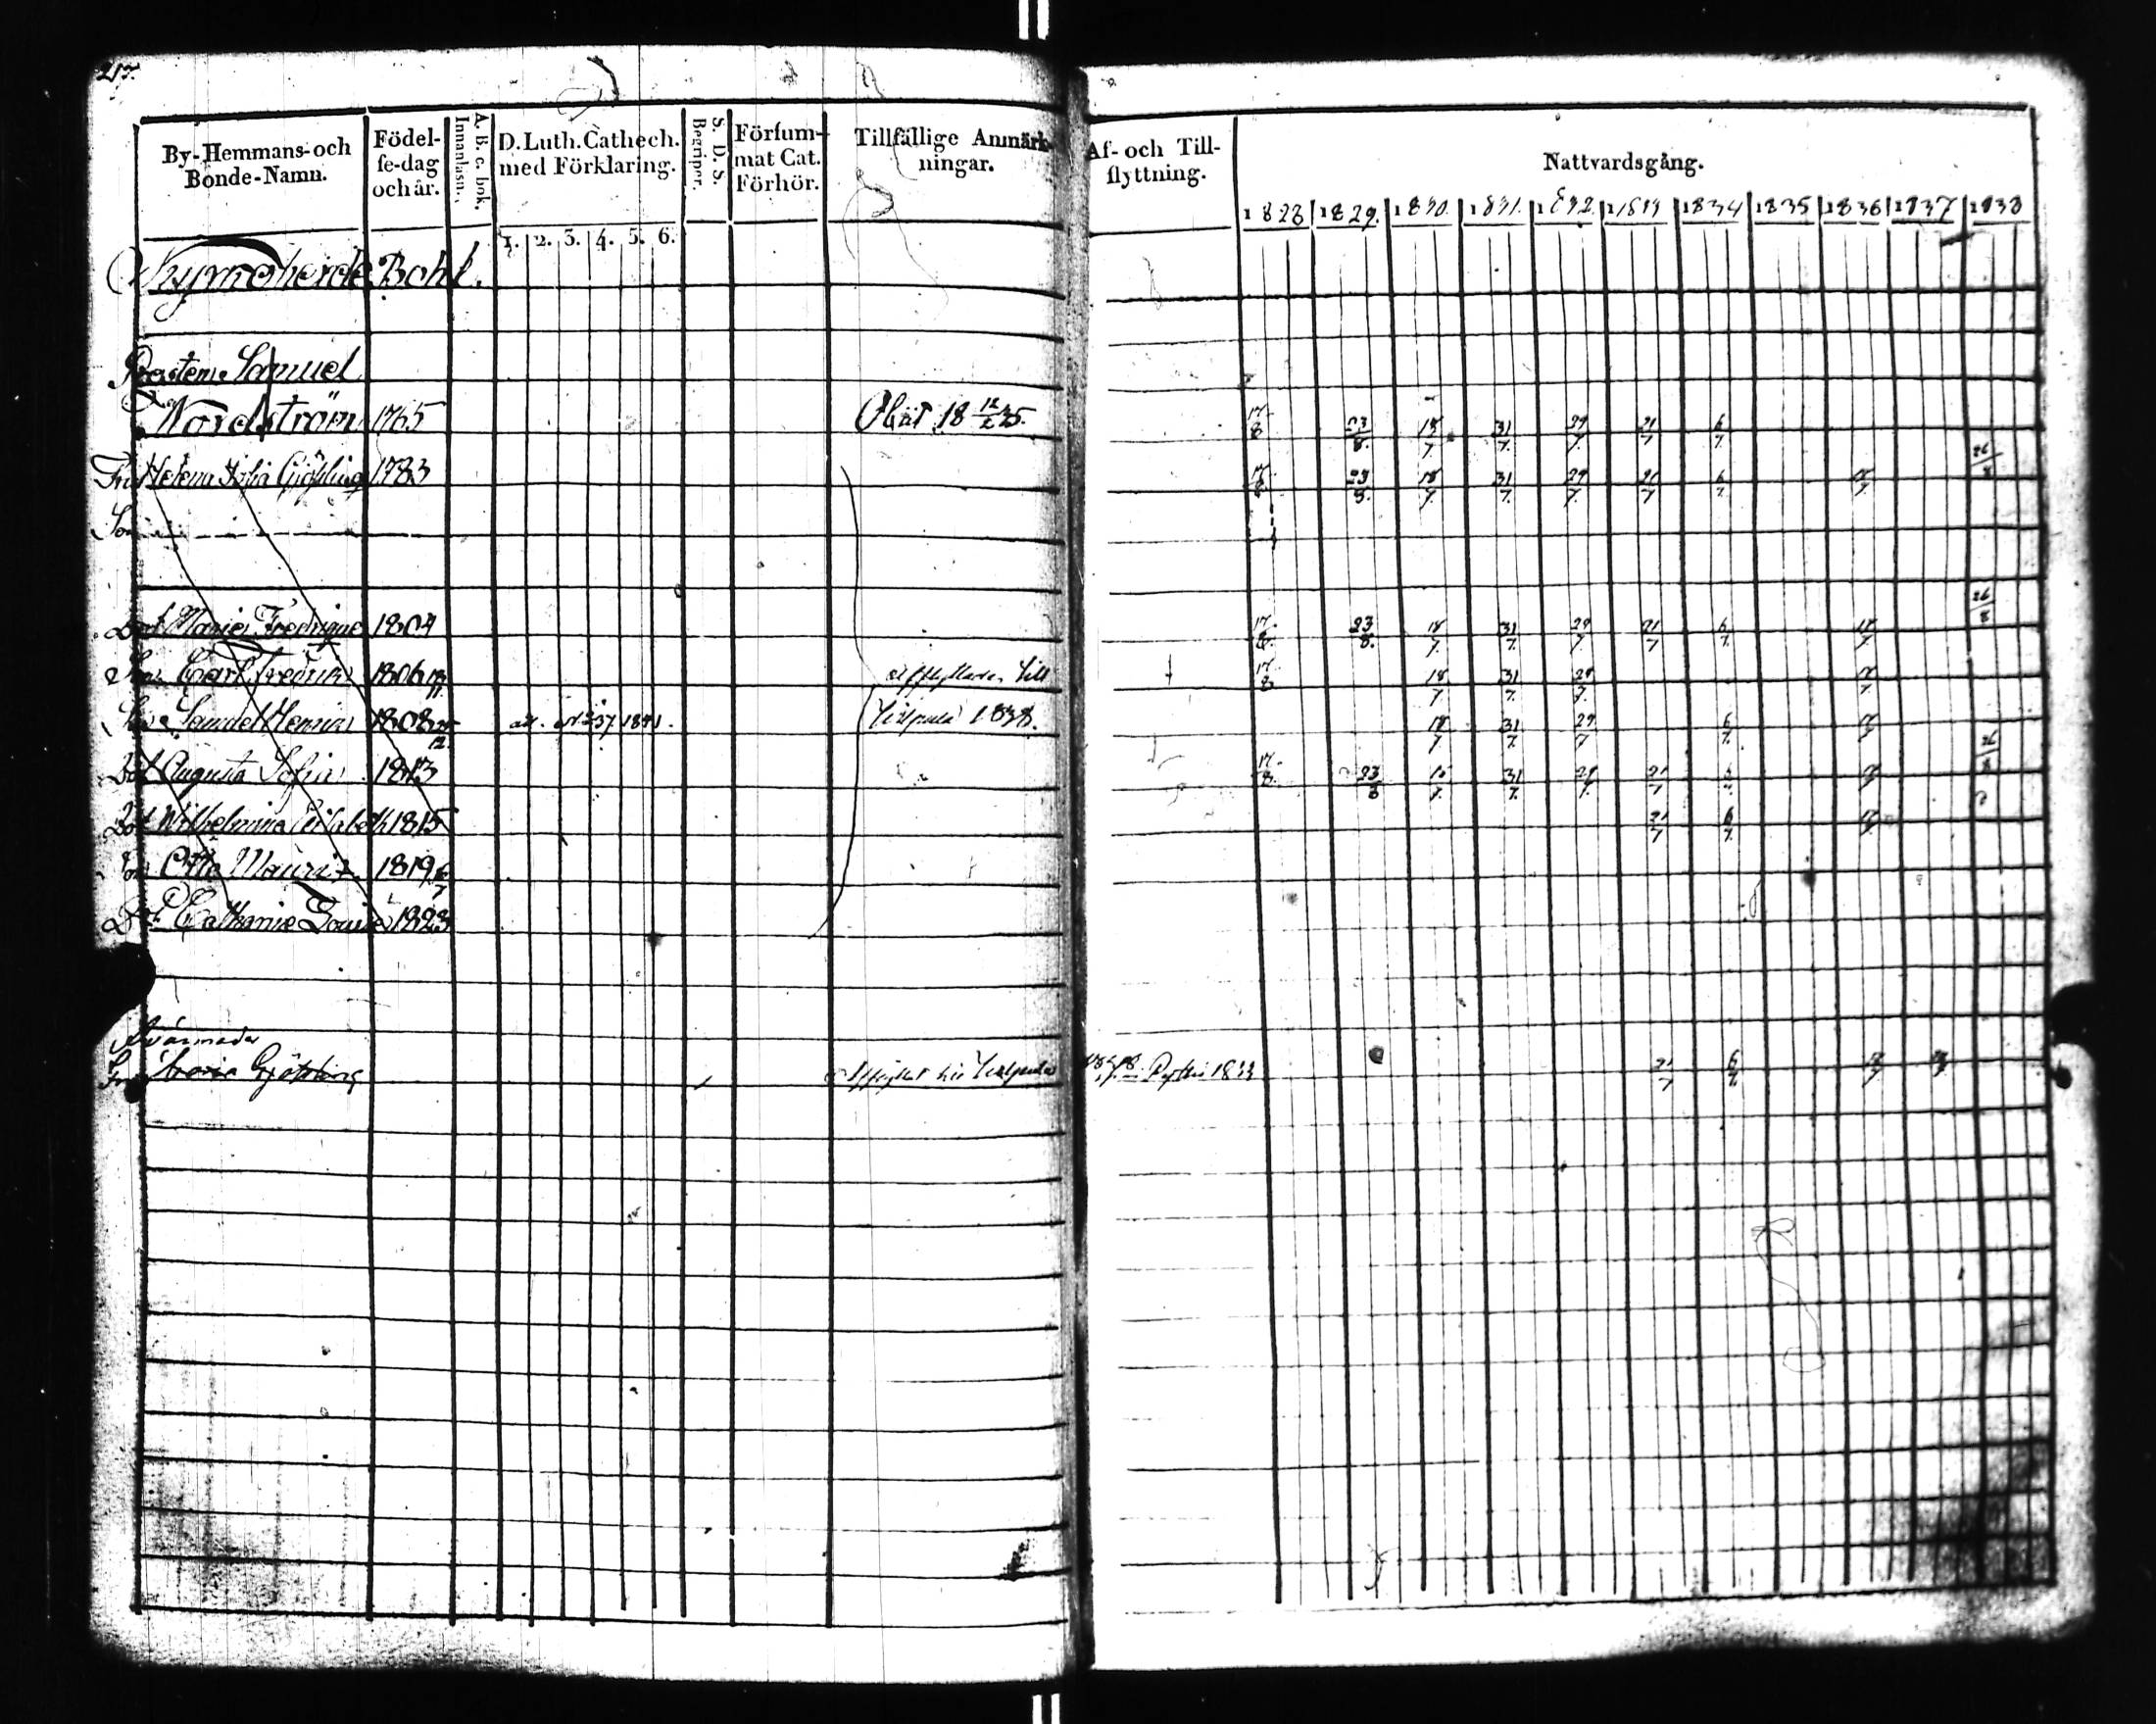 217.
By-Hemmans- och Bonde-Namn.
Födel-se-dag och år.
A. B. c. bok. Innanläsn.
D. Luth. Cathech. med Förklaring.
1. 2. 3. 4. 5. 6.
S. D. S. Begriper.
Försum-mat Cat. Förhör.
Tillfällige Anmärk-ningar.
Af- och Till-flyttning.
Nattvardsgång.
1828 1829. 1830. 1831. 1832. 1833 1834 1835 1836 1837 1838
Bohl.
Samuel
Nordström 1765 Obiit 18 12/2 35. 17/8 23/8. 18/7 31/7. 29/7. 21/7 6/7.
Fru Helena Sofia Gjöþling 1783 17/8 23/8. 18/7. 31/7. 29/7. 21/7 6/7. 17/7 26/8
Son
Dot Maria Fredrique 1804 17/8. 23/8. 18/7. 31/7. 29/7. 21/7 6/7. 18/7. 26/8
Son Carl Fredrik 1806 afflyttade till 17/8 18/7 31/7. 29/7.
Son Samuel Henric 1808 1838. 18/7 31/7. 29/7 6/7.
Dot Augusta Sofia 1813 17/8. 23/8 31/7. 21/7 26/8
Dot Wilhelmina Elisabeth 1815 21/7 6/7.
Son Otto Mauritz 1819
Dot. Catharine Louise 1823
Svärmoder
Fru Maria Gjöþling 1833 21/7 6/7.